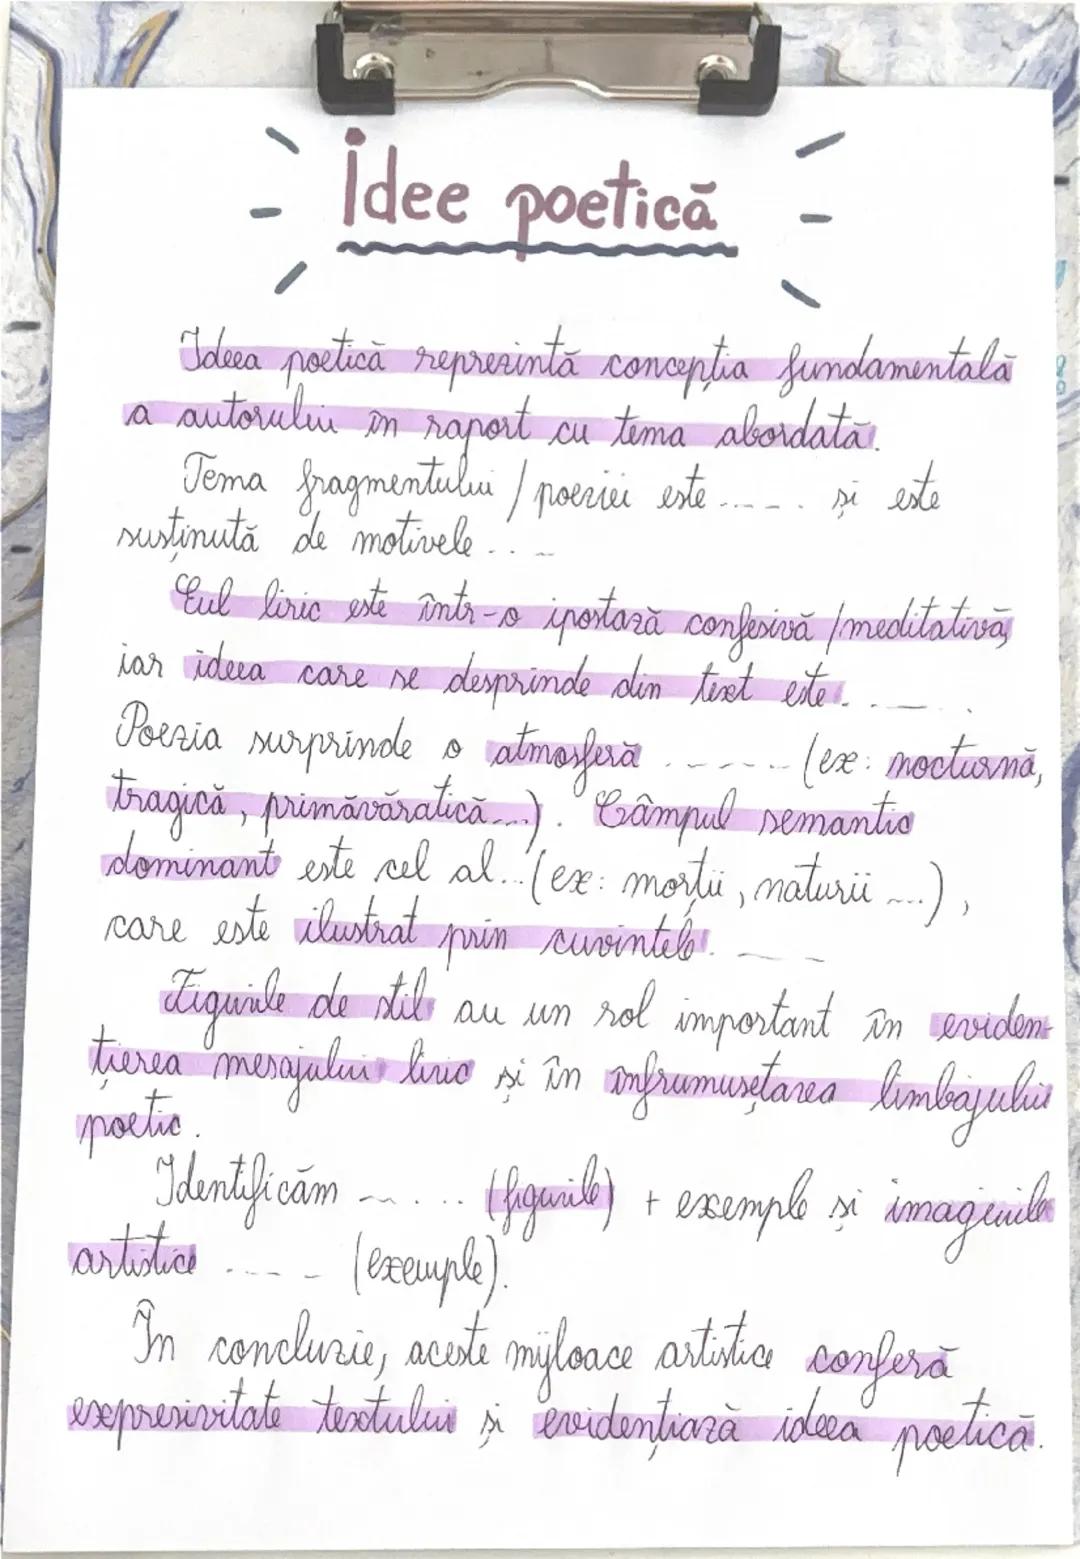 Idee poetică
Ideea poetică reprezintă concepția fundamentală
a autorului în raport cu tema abordată.
Tema fragmentului / poeziei este ..... și este
susținută de motivele ....
Eul liric este într-o ipostază confesivă /meditativă,
iar ideea care se desprinde din text este .....
Poezia surprinde o atmosferă ...... (ex: nocturnă,
tragică, primăvăratică...). Câmpul semantic
dominant este cel al...(ex: morții, naturii ....),
care este ilustrat prin cuvintele ....
Figurile de stil au un rol important în eviden-
țierea mesajului liric și în înfrumusețarea limbajului
poetic.
Identificăm ...... (figurile) + exemple și imaginile
artistice ..... (exemple).
În concluzie, aceste mijloace artistice conferă
expresivitate textului și evidențiază ideea poetică.